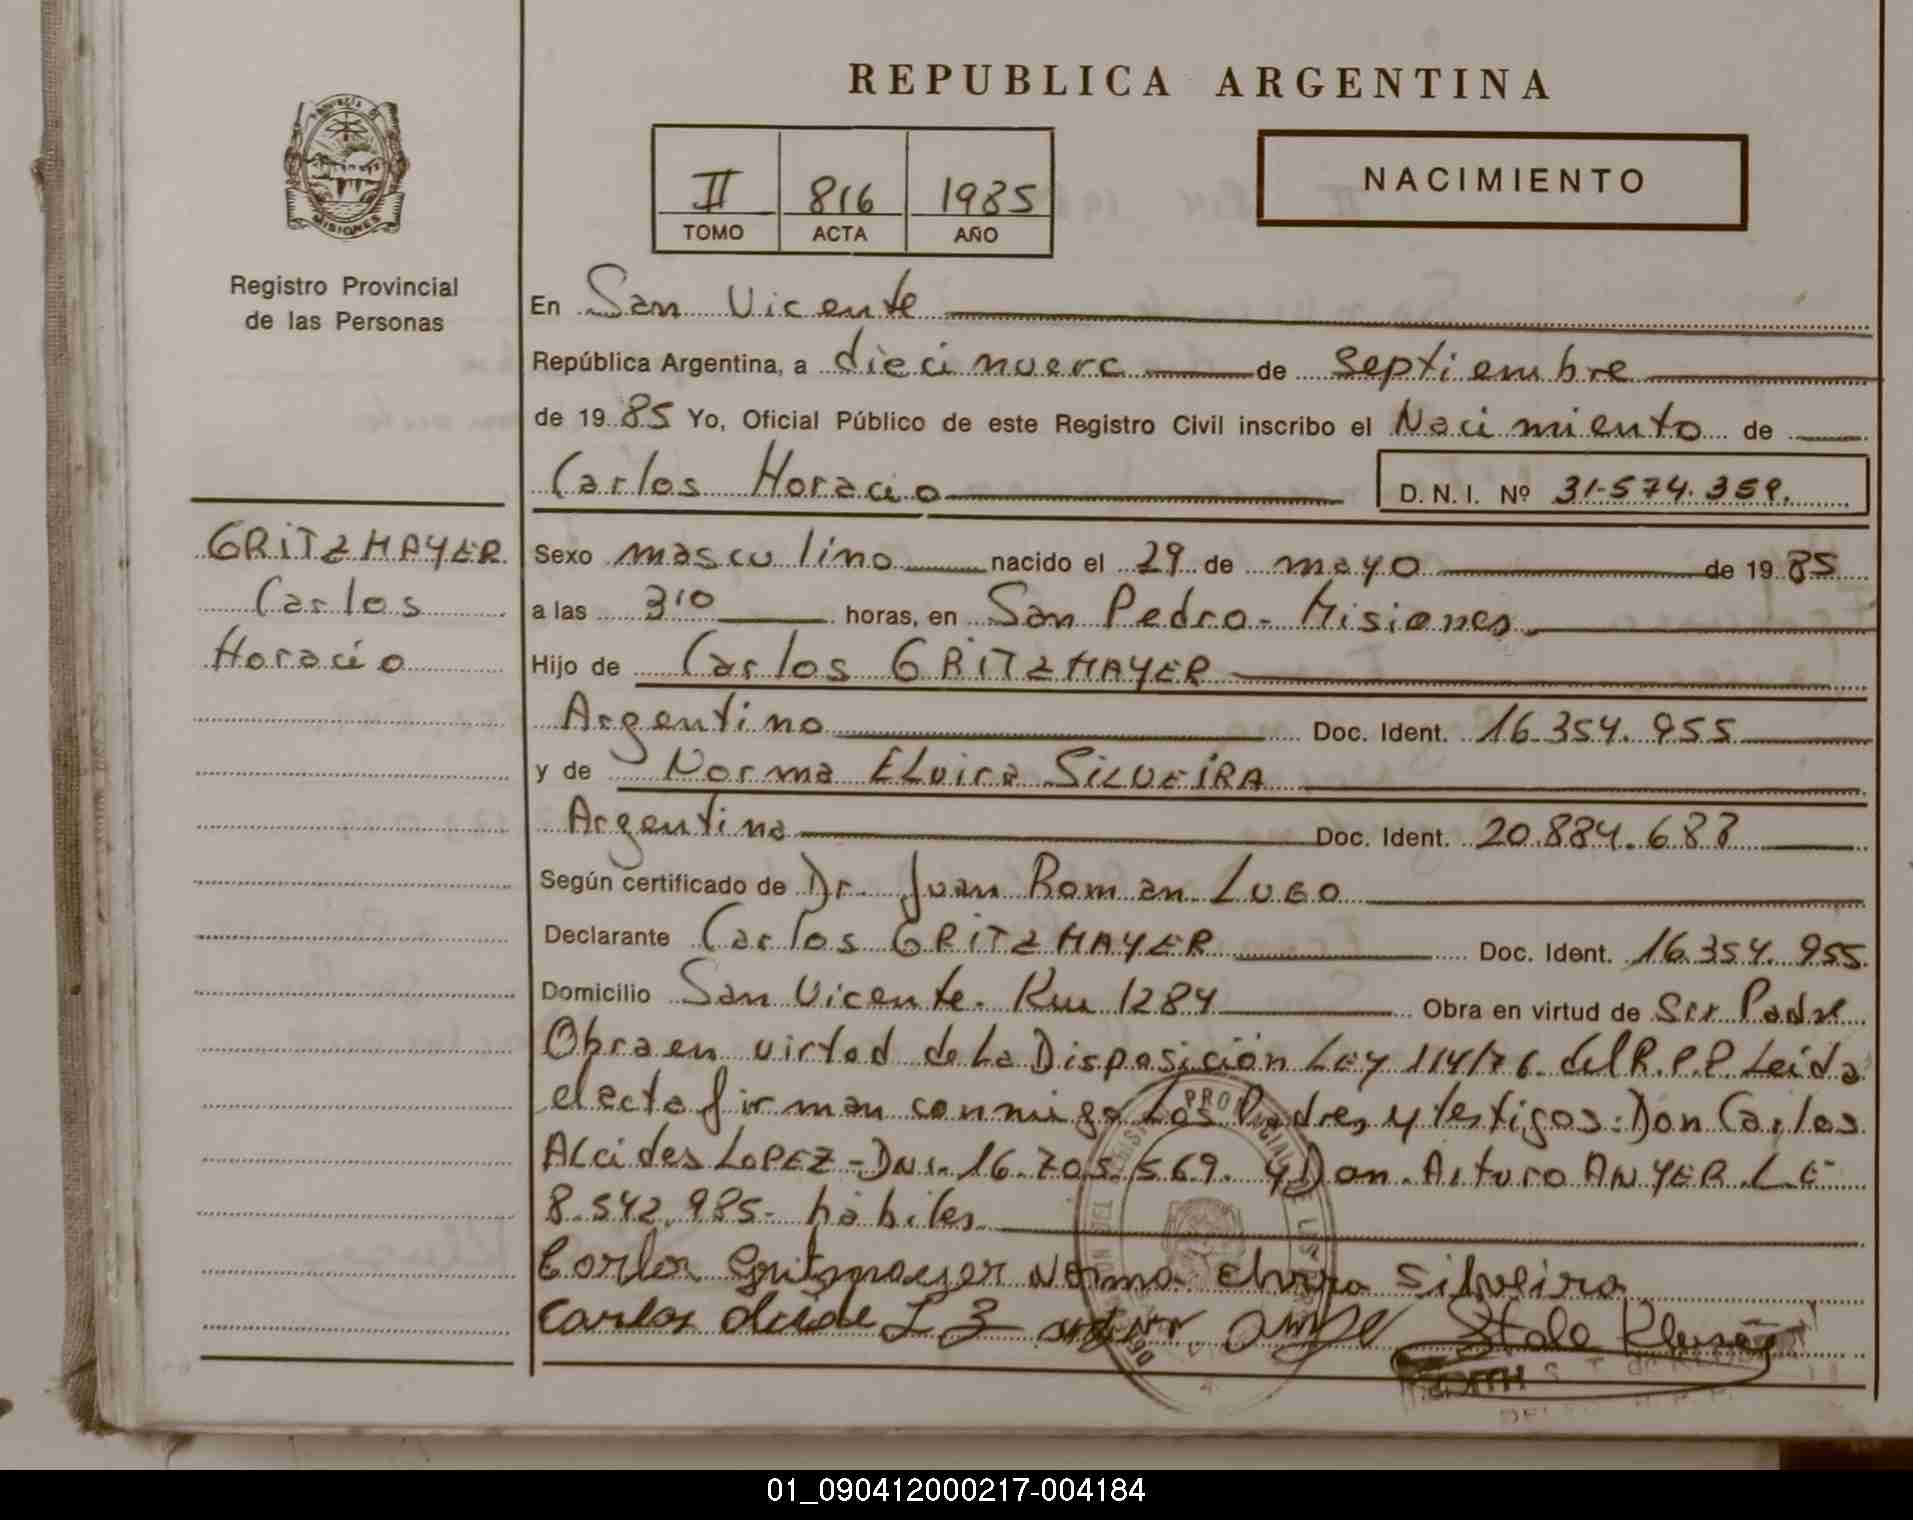 REPUBLICA ARGENTINA
II 816 1985
TOMO ACTA AÑO
NACIMIENTO
MISIONES
Registro Provincial
de las Personas
GRITZMAYER
Carlos
Horacio
En San Vicente
República Argentina, a diecinueve de septiembre
de 1985 Yo, Oficial Público de este Registro Civil inscribo el Nacimiento de
Carlos Horacio D.N.I. Nº 31.574.359.
Sexo masculino nacido el 29 de mayo de 1985
a las 3'10 horas, en San Pedro - Misiones
Hijo de Carlos GRITZMAYER
Argentino Doc. Ident. 16.354.955
y de Norma ELvira SiLVEiRA
Argentina Doc. Ident.
Según certificado de Dr. Juan Roman Lugo
Declarante Carlos GRITZMAYER Doc. Ident. 16.354.955
Domicilio San Vicente. Km 1284 Obra en virtud de Ser Padre
Obra en virtud de La Disposición Ley 114/76 del R.P.P Leida
el acta firman conmigo Los Padres y testigos: Don Carlos
ALcides LOPEZ - DNI. 16.705.569. y Don Arturo ANYER L.E
8.542.985- hábiles
Carlos Gritzmayer Norma Elvira Silveira
Carlos
01_090412000217-004184